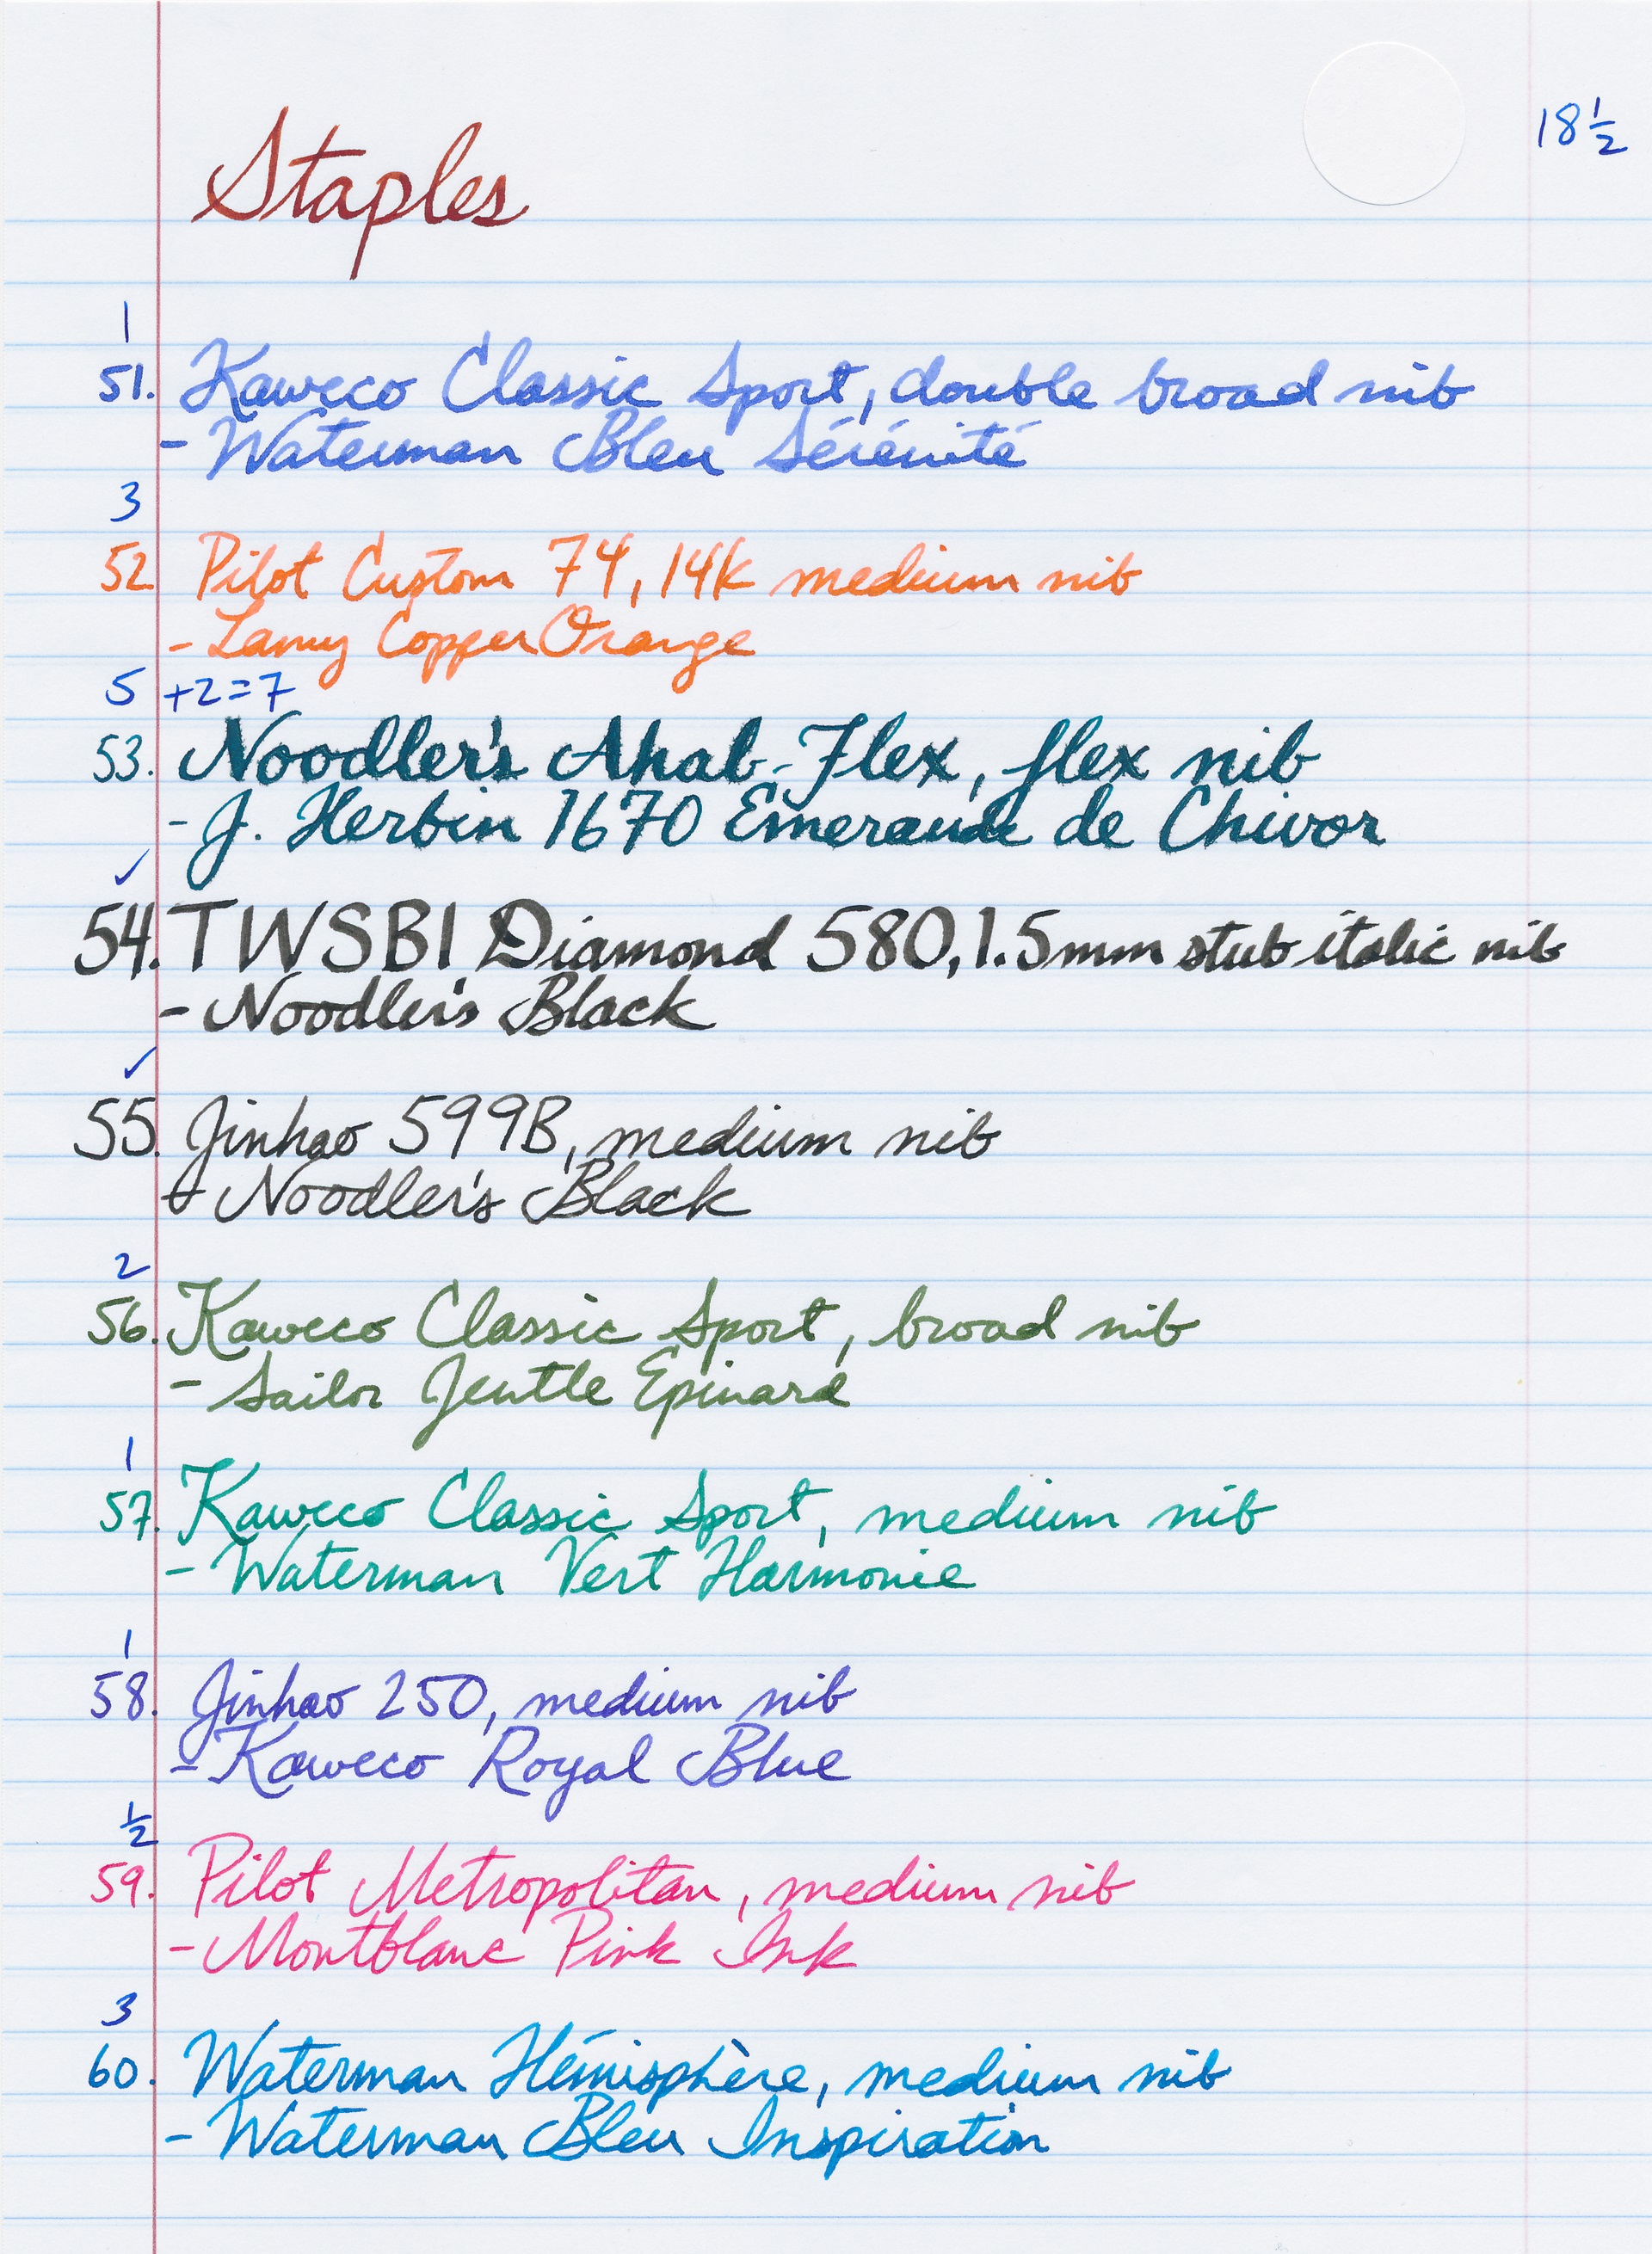 18 1/2
Staples
1
51. Kaweco Classic Sport, double broad nib
- Waterman Bleu Sérénité
3
52 Pilot Custom 74, 14k medium nib
- Lamy Copper Orange
5 +2=7
53. Noodler's Ahab-Flex, flex nib
- J. Herbin 1670 Emeraude de Chivor
✓
54. TWSBI Diamond 580, 1.5mm stub italic nib
- Noodler's Black
✓
55. Jinhao 599B, medium nib
- Noodler's Black
2
56. Kaweco Classic Sport, broad nib
- Sailor Jentle Epinard
1
57. Kaweco Classic Sport, medium nib
- Waterman Vert Harmonie
1
58. Jinhao 250, medium nib
- Kaweco Royal Blue
1/2
59. Pilot Metropolitan, medium nib
- Montblanc Pink Ink
3
60. Waterman Hémisphère, medium nib
- Waterman Bleu Inspiration